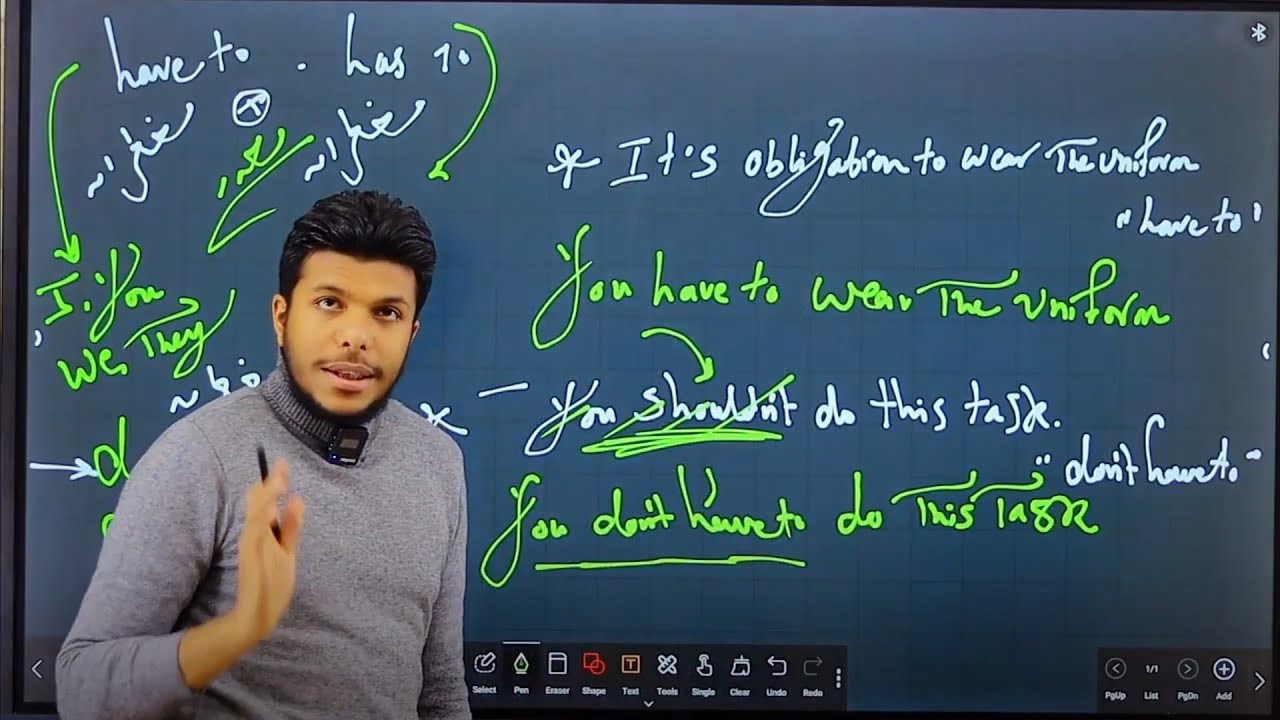 have to . has to
* It's obligation to wear The uniform
"have to"
You have to wear The uniform
I. You
We, They
x - You shouldn't do this task.
"don't have to"
You don't have to do This Task
Select Pen Eraser Shape Text Tools Single Clear Undo Redo
PgUp 1/1 List PgDn Add